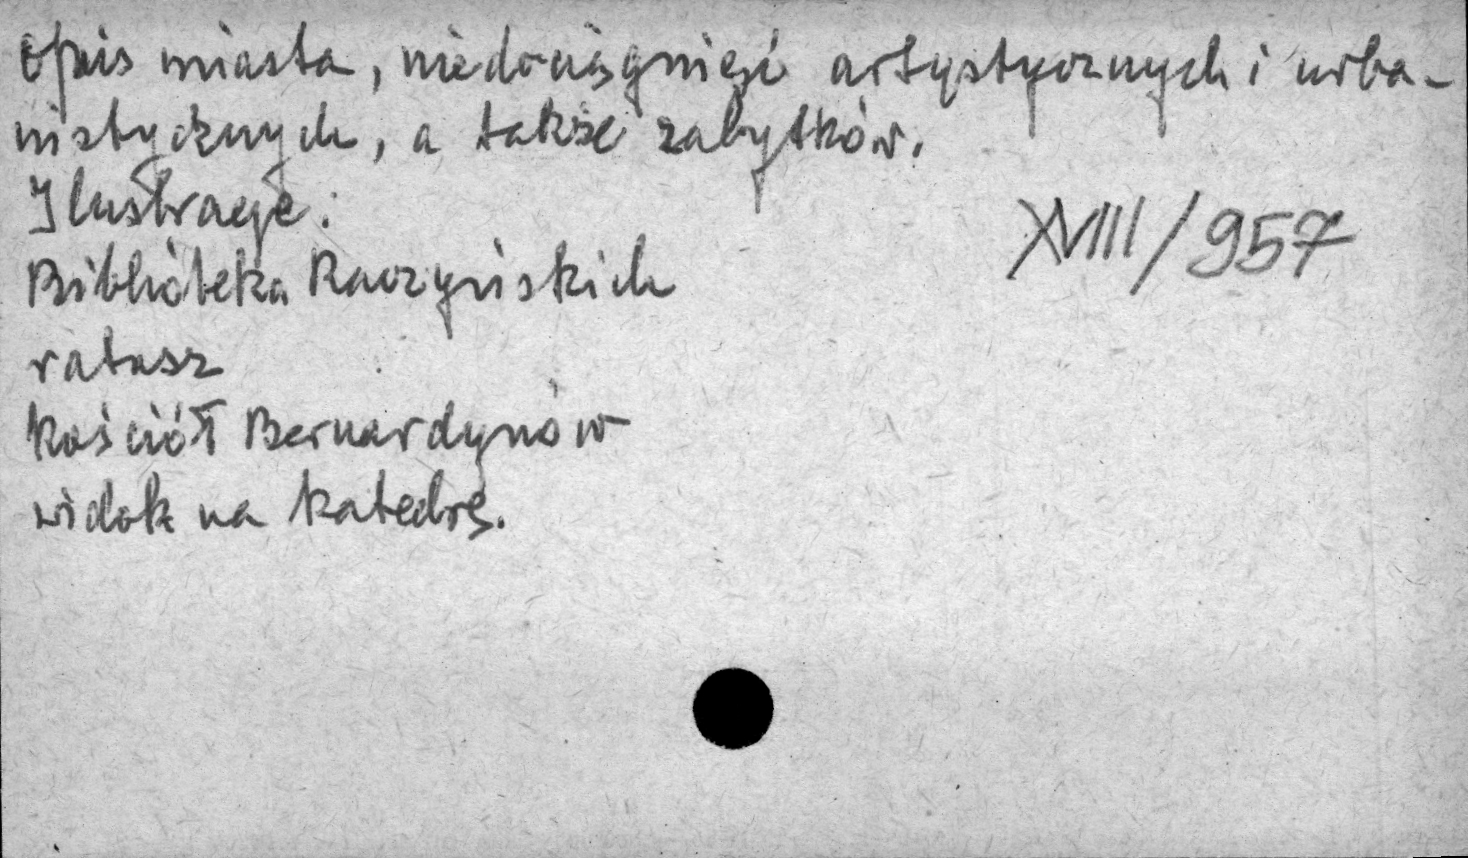 Opis miasta, niedociągnięć artystycznych i urba-
nistycznych, a także zabytków.
Ilustracje:
XVIII/957
Biblioteka Raczyńskich
ratusz
kościół Bernardynów
widok na katedrę.